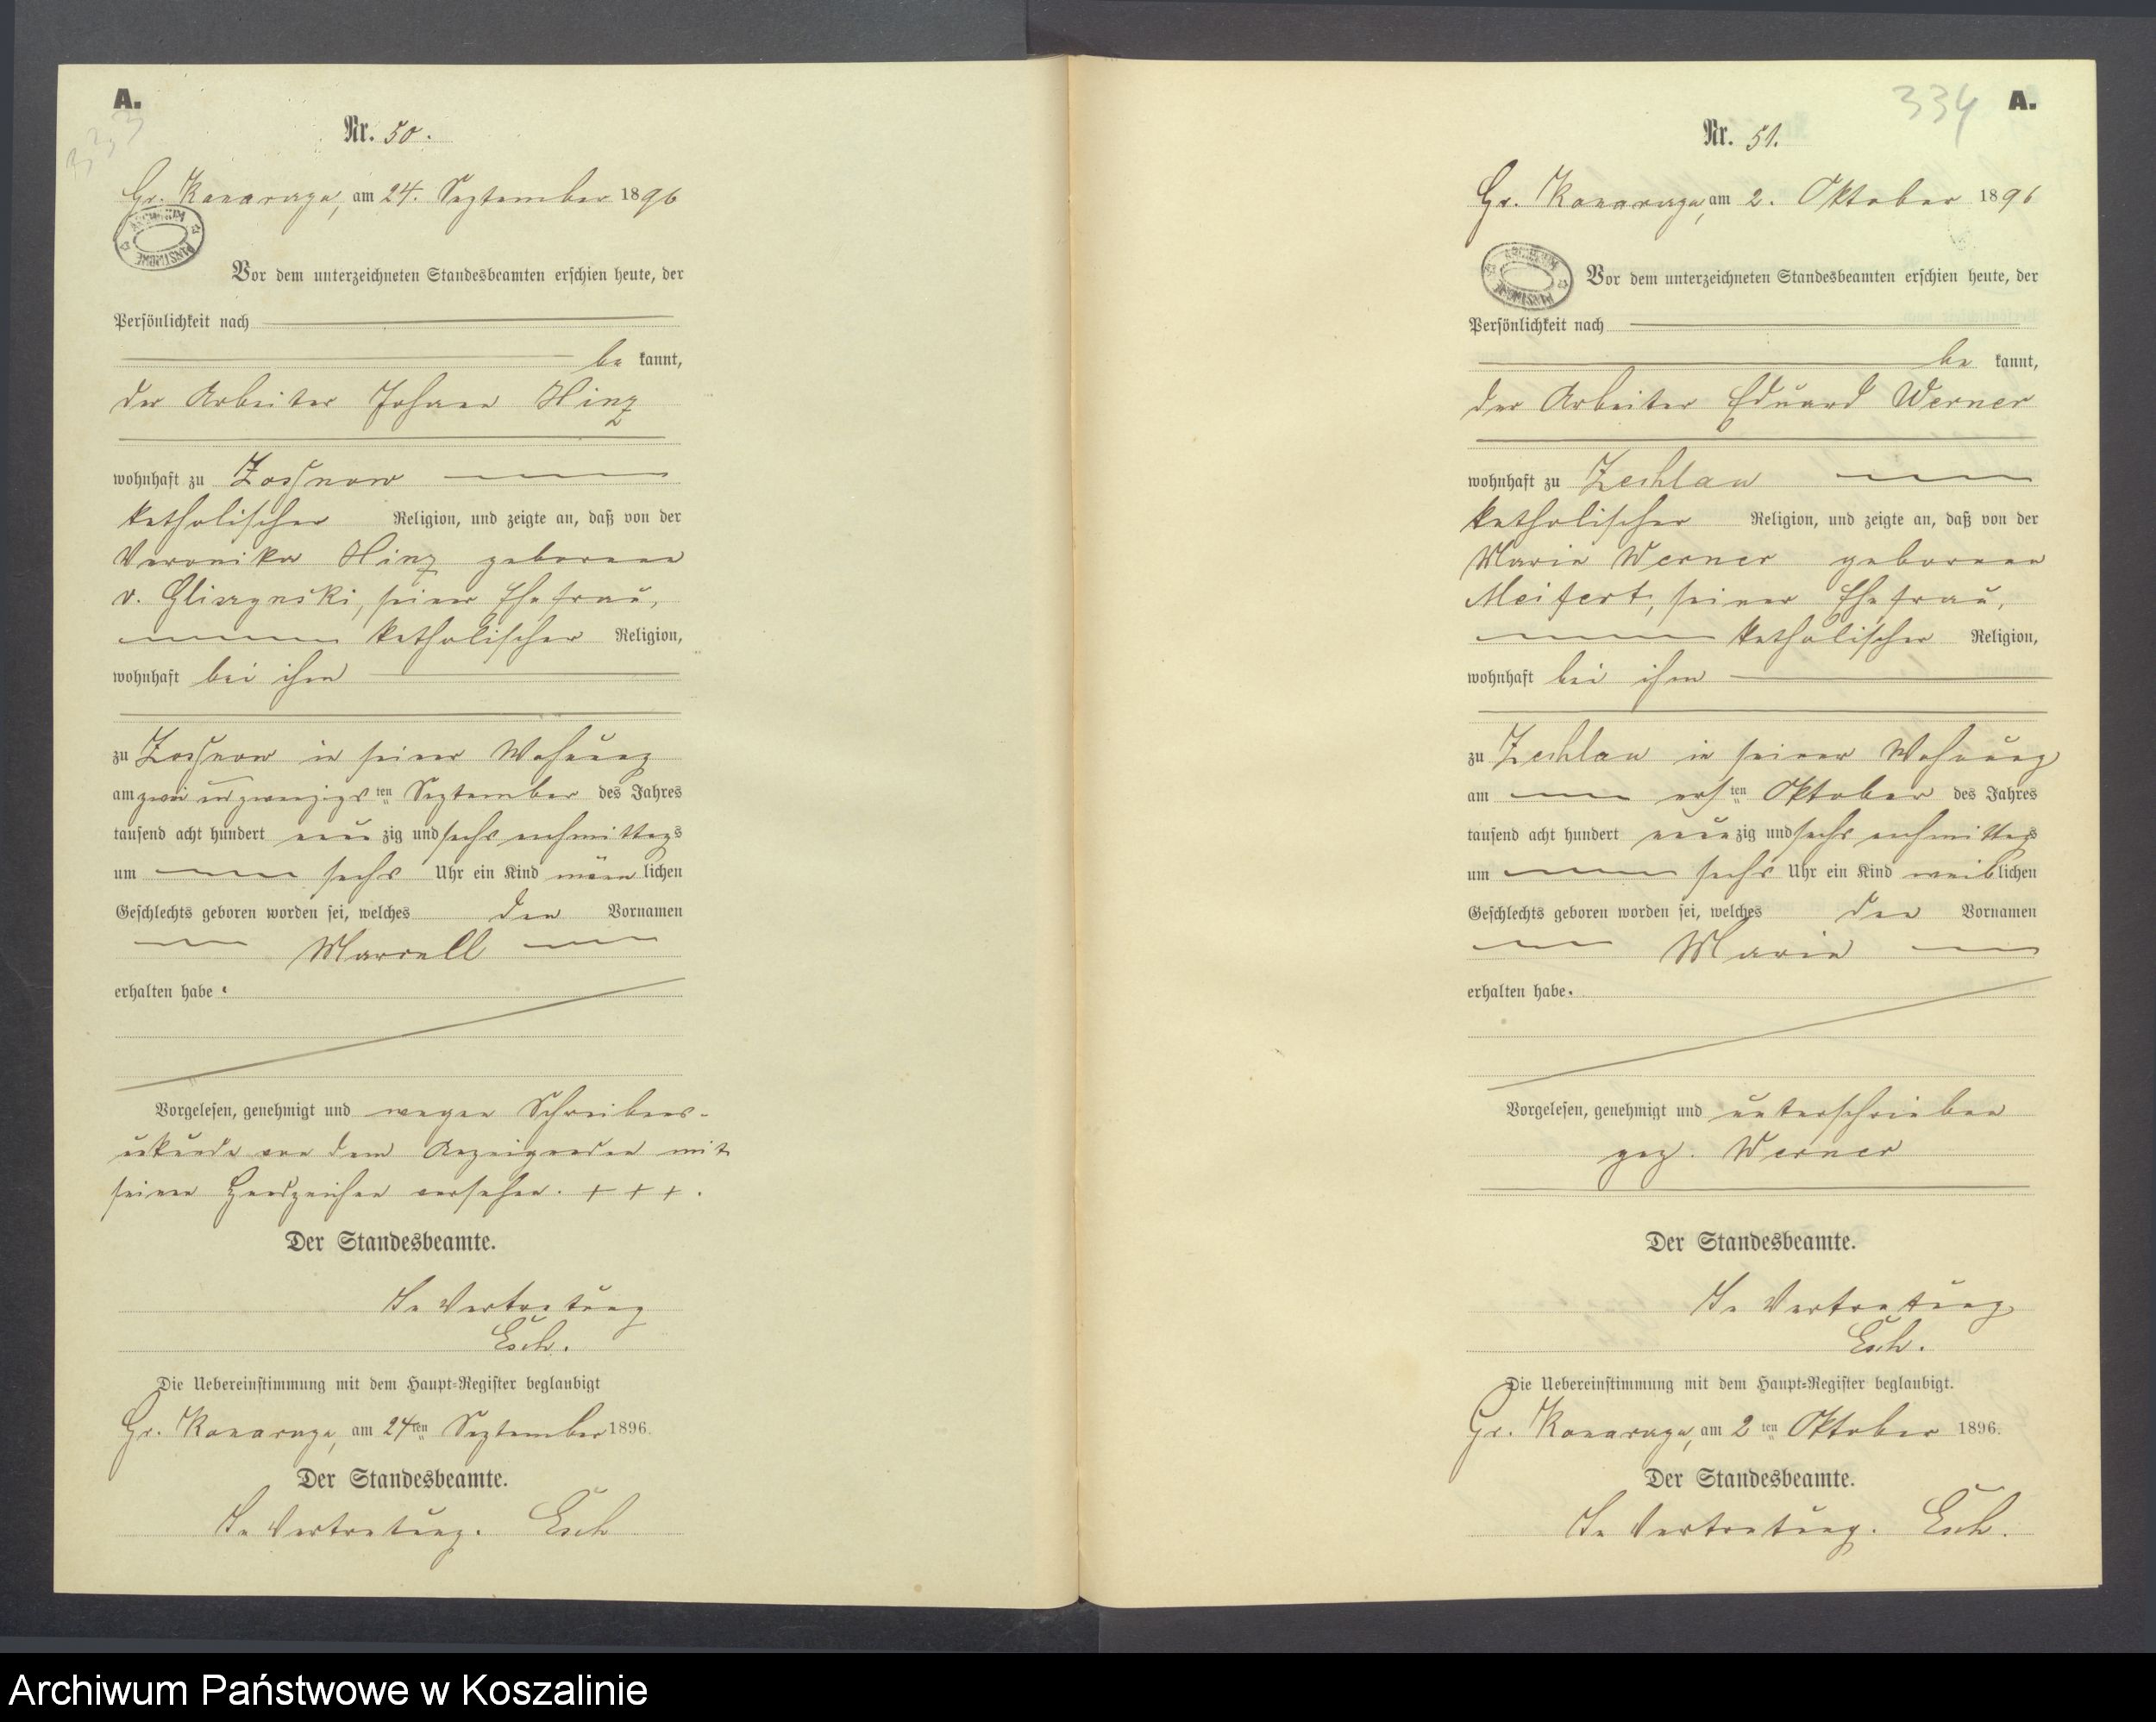 A.
333
Nr. 50.
Gr. Konarzyn, am 24. September 1896
Vor dem unterzeichneten Standesbeamten erschien heute, der
Persönlichkeit nach
be kannt,
der Arbeiter Johann Hinz
wohnhaft zu Zossnow
katholischer Religion, und zeigte an, daß von der
Veronika Hinz geborenen
v. Gliszynski, seiner Ehefrau,
katholischer Religion,
wohnhaft bei ihm
zu Zossnow in seiner Wohnung
am zwei und zwanzigsten September des Jahres
tausend acht hundert neun zig und sechs nachmittags
um sechs Uhr ein Kind männ lichen
Geschlechts geboren worden sei, welches den Vornamen
Marzell
erhalten habe.
Vorgelesen, genehmigt und wegen Schreibens-
unkunde von dem Anzeigenden mit
seinen Handzeichen versehen. + + + .
Der Standesbeamte.
In Vertretung
Esch.
Die Uebereinstimmung mit dem Haupt-Register beglaubigt
Gr. Konarzyn, am 24ten September 1896.
Der Standesbeamte.
In Vertretung. Esch
334 A.
Nr. 51.
Gr. Konarzyn, am 2. Oktober 1896
Vor dem unterzeichneten Standesbeamten erschien heute, der
Persönlichkeit nach
be kannt,
der Arbeiter Eduard Werner
wohnhaft zu Zechlau
katholischer Religion, und zeigte an, daß von der
Marie Werner geborenen
Meifert, seiner Ehefrau,
katholischer Religion,
wohnhaft bei ihm
zu Zechlau in seiner Wohnung
am ersten Oktober des Jahres
tausend acht hundert neun zig und sechs nachmittags
um sechs Uhr ein Kind weib lichen
Geschlechts geboren worden sei, welches den Vornamen
Marie
erhalten habe.
Vorgelesen, genehmigt und unterschrieben
gez. Werner
Der Standesbeamte.
In Vertretung
Esch.
Die Uebereinstimmung mit dem Haupt-Register beglaubigt.
Gr. Konarzyn, am 2ten Oktober 1896.
Der Standesbeamte.
In Vertretung. Esch.
Archiwum Państwowe w Koszalinie